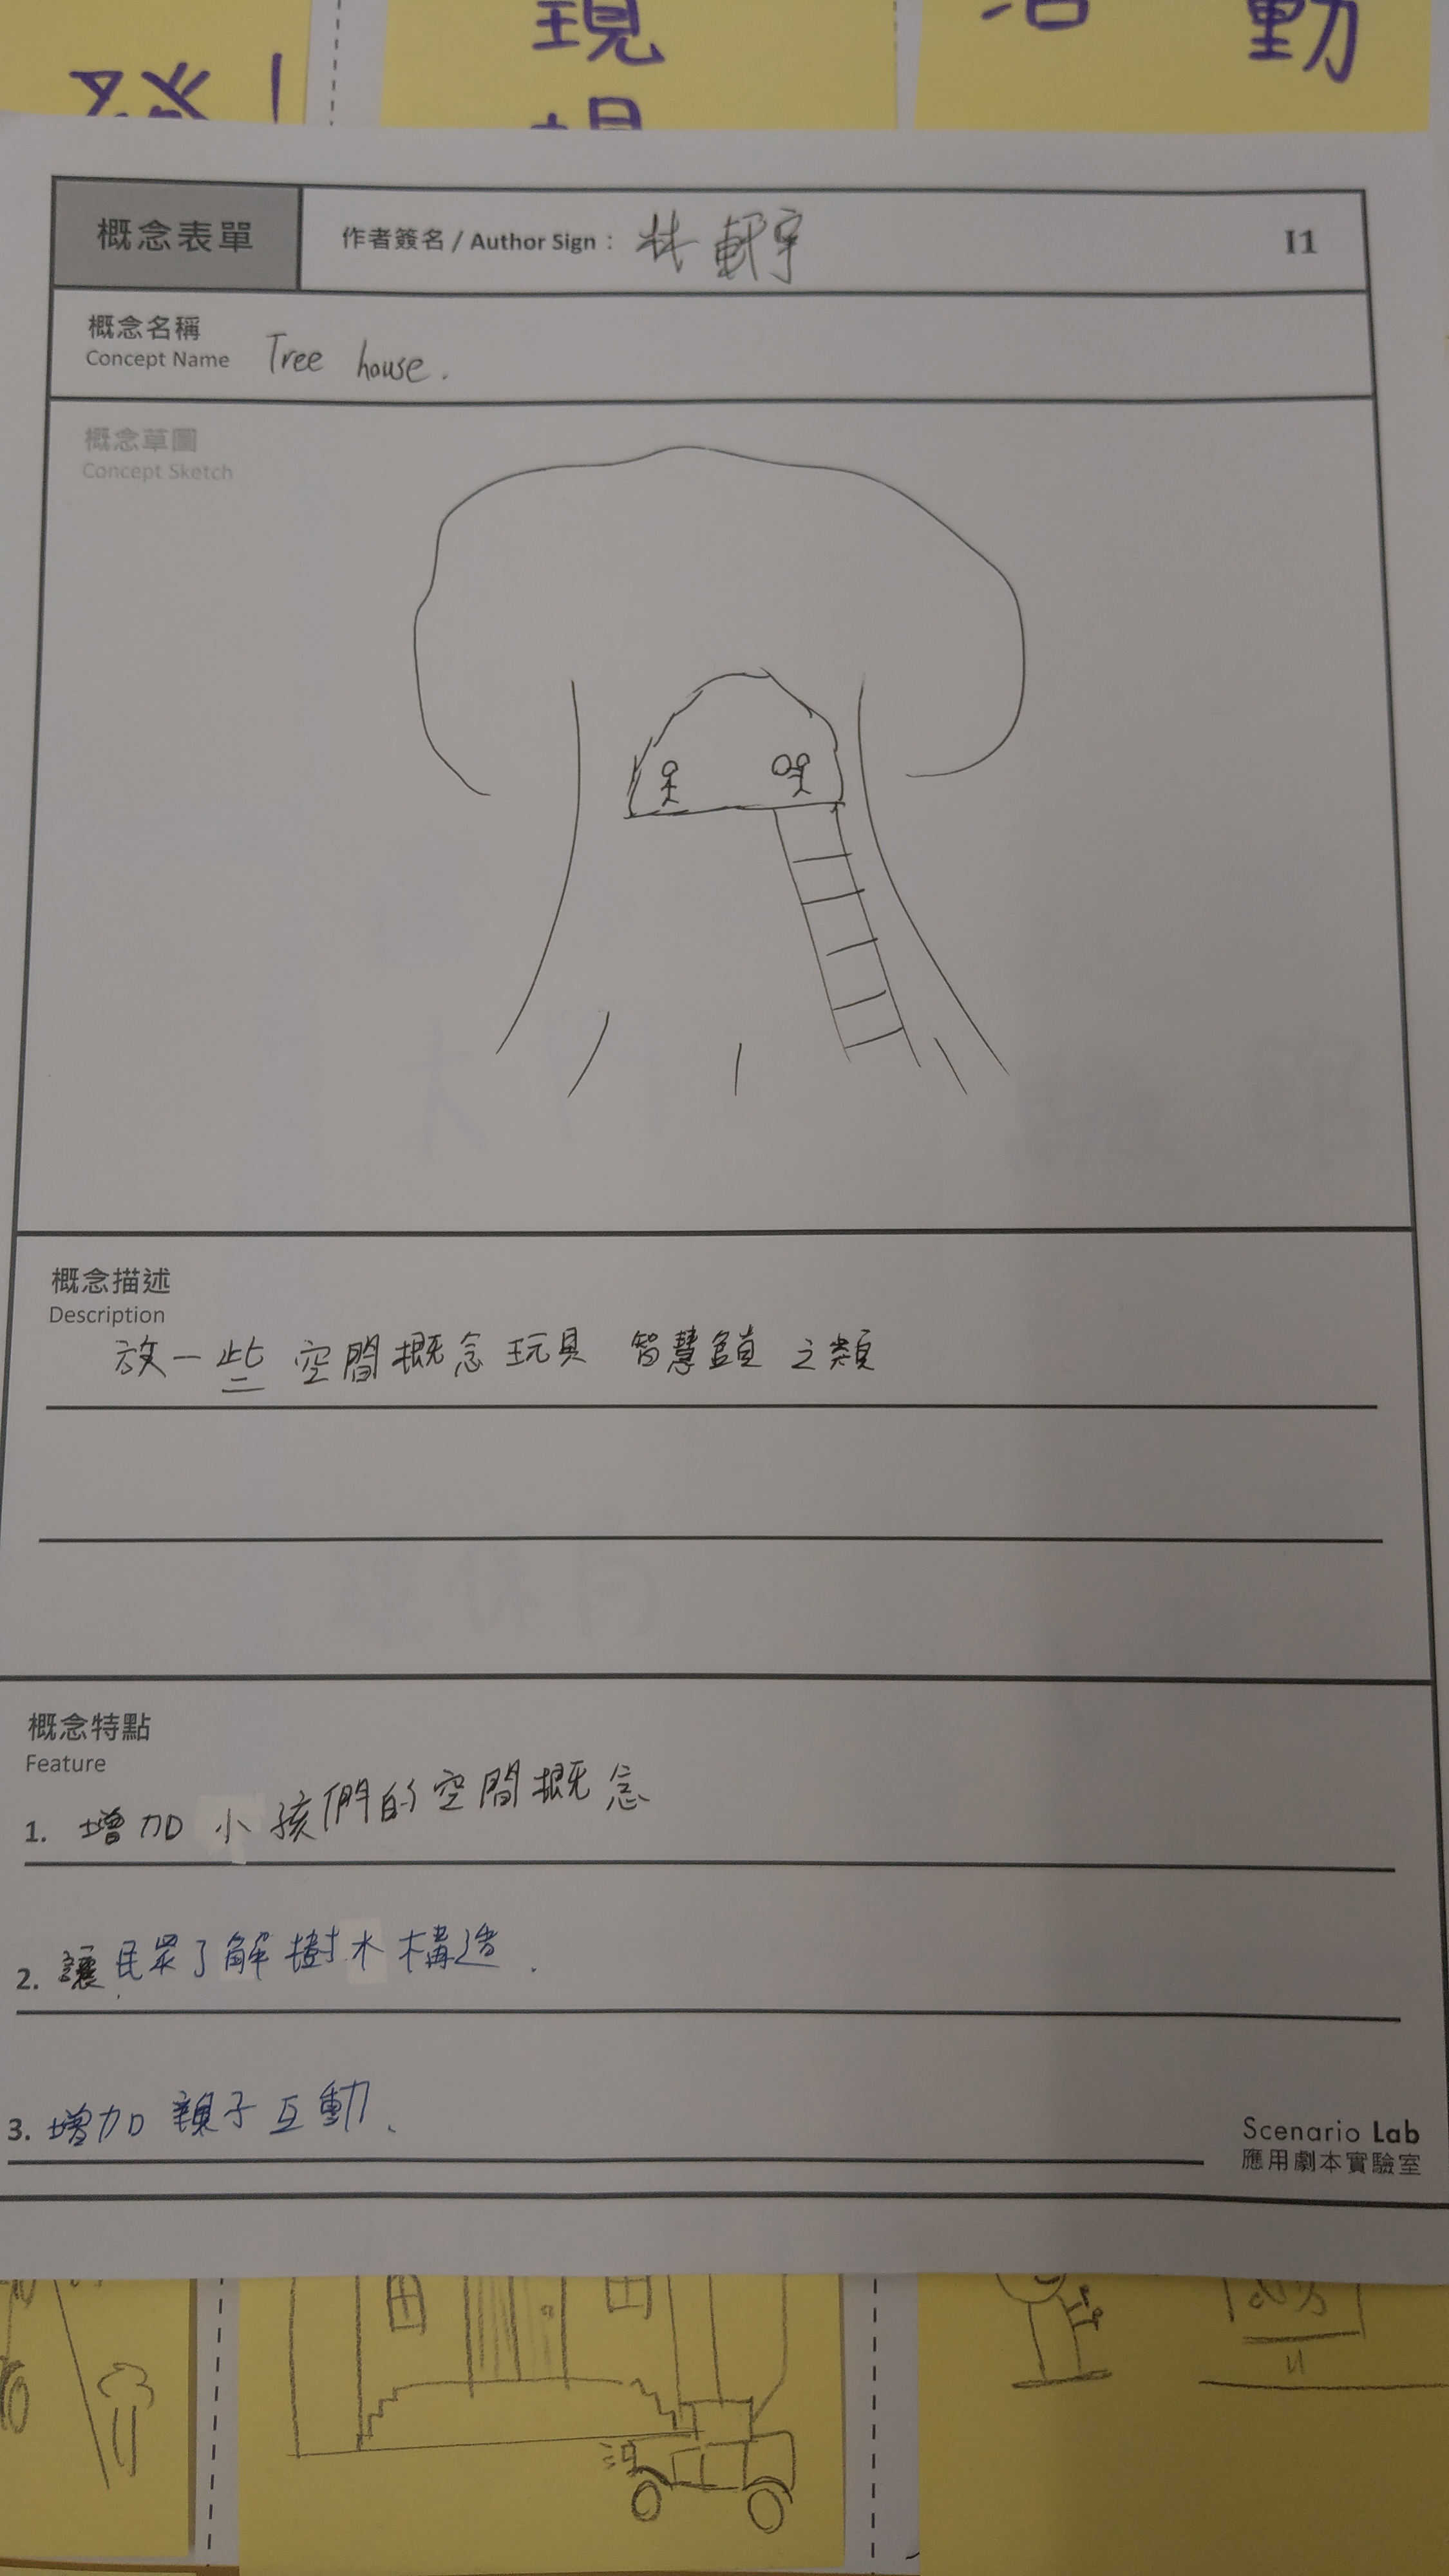 現
活 動
概念表單
作者簽名 / Author Sign : 林軒宇
I1
概念名稱
Concept Name Tree house.
概念草圖
Concept Sketch
概念描述
Description
放一些 空間概念 玩具 智慧鎖 之類
概念特點
Feature
1. 增加 小孩們的空間概念
2. 讓民眾了解樹木構造.
3. 增加親子互動、
Scenario Lab
應用劇本實驗室